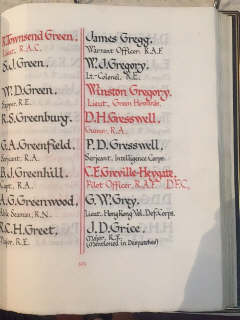 R. Townsend Green.
Lieut. R.A.C.
S.J. Green.
W.D. Green.
Sapper. R.E.
R.S. Greenburg.
G.A. Greenfield.
Serjeant. R.A.
B.J. Greenhill.
Capt. R.A.
A.G. Greenwood.
Able Seaman, R.N.
R.C.H. Greet.
Major, R.E.
James Gregg.
Warrant Officer R.A.F.
W.J. Gregory.
Lt.-Colonel, R.E.
Winston Gregory.
Lieut., Green Howards.
D.H. Gresswell.
Gunner, R.A.
P.D. Gresswell.
Serjeant, Intelligence Corps.
C.F. Greville-Heygate,
Pilot Officer R.A.F. D.F.C.
G.W. Grey.
Lieut. Hong Kong Vol. Def. Corps.
J.D. Grice.
Major, R.F.
(Mentioned in Despatches)